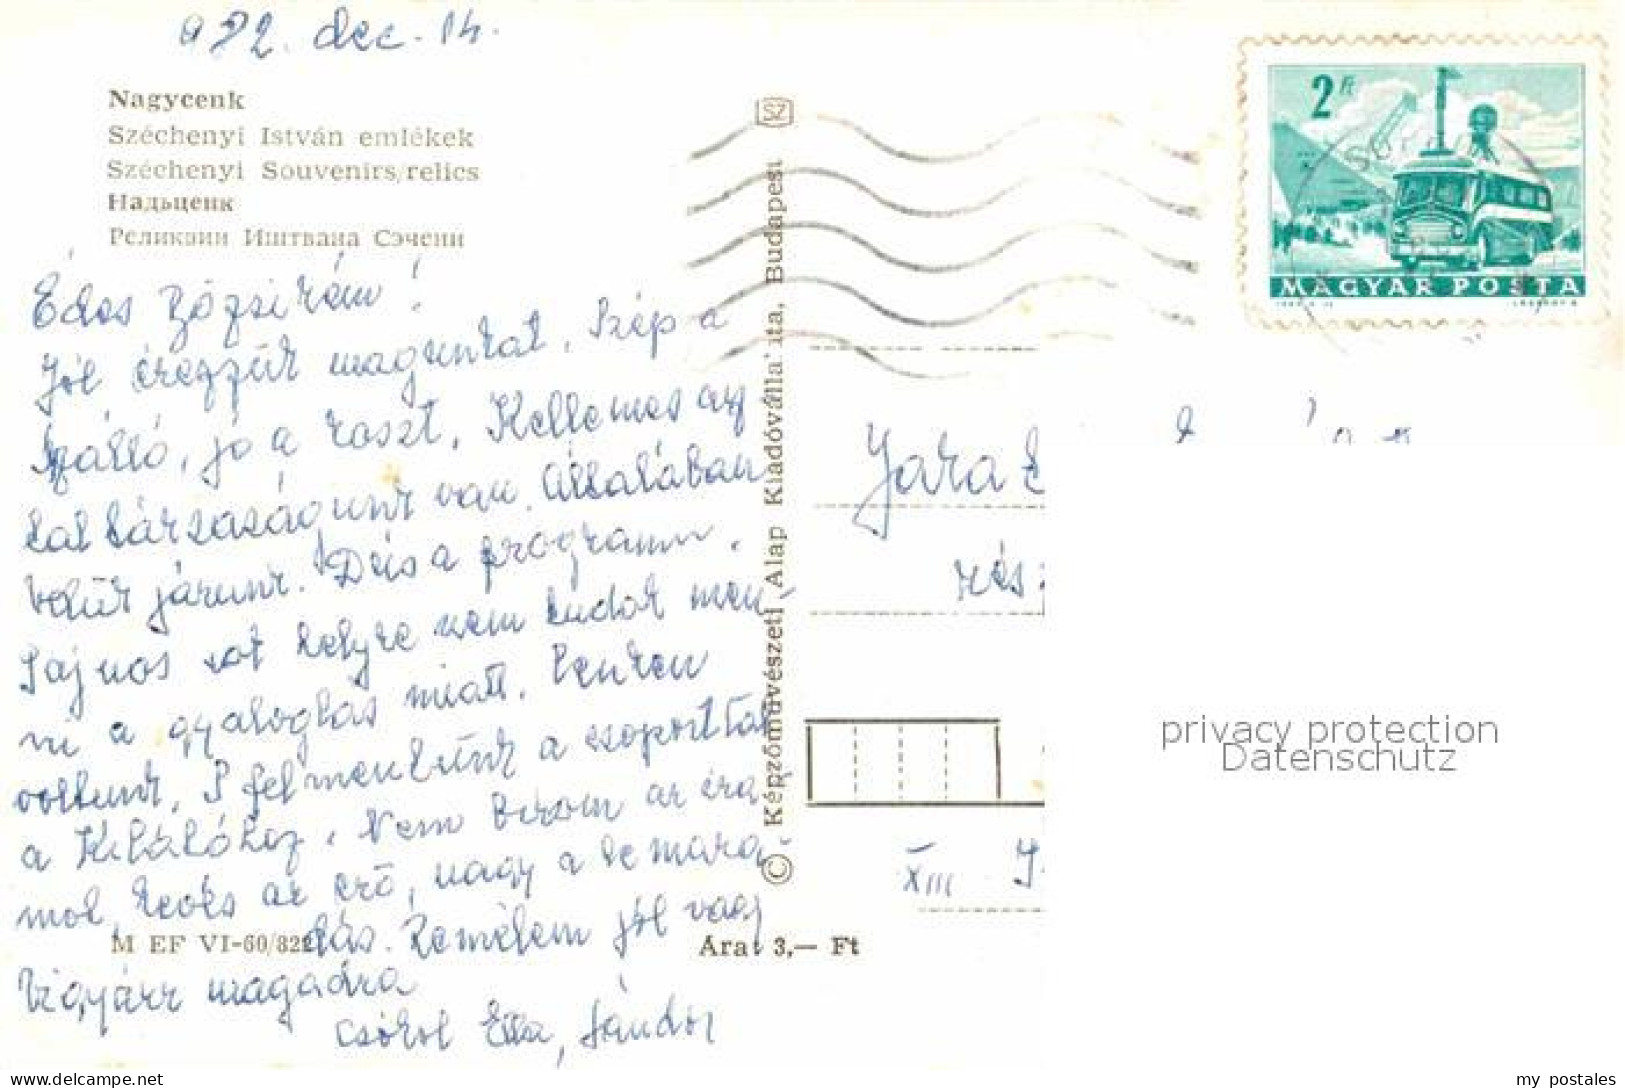 982. dec. 14.
Nagycenk
Széchenyi István emlékek
Széchenyi Souvenirs/relics
Надьценк
Реликвии Иштвана Сэчени
Édes Rózsikám!
Jól érezzük magunkat. Szép a
szálló, jó a koszt. Kellemes asz
tal társaságunk van. Általában
velük járunk. Dús a program.
Sajnos sok helyre nem tudok men-
ni a gyaloglás miatt. Fenken
voltunk. S felmentünk a csoporttal
a Kilátóhoz. Nem birom az ira
mot, kevés az erő, nagy a lemara-
dás. Remélem jól vagy
Vigyázz magadra
Csókol Ella, Sándor
M EF VI-60/822
Ára: 3,— Ft
© Képzőművészeti Alap Kiadóvállalata, Budapest
SZ
2 Ft
MAGYAR POSTA
Jara
rés
XIII
privacy protection
Datenschutz
www.delcampe.net
my_postales